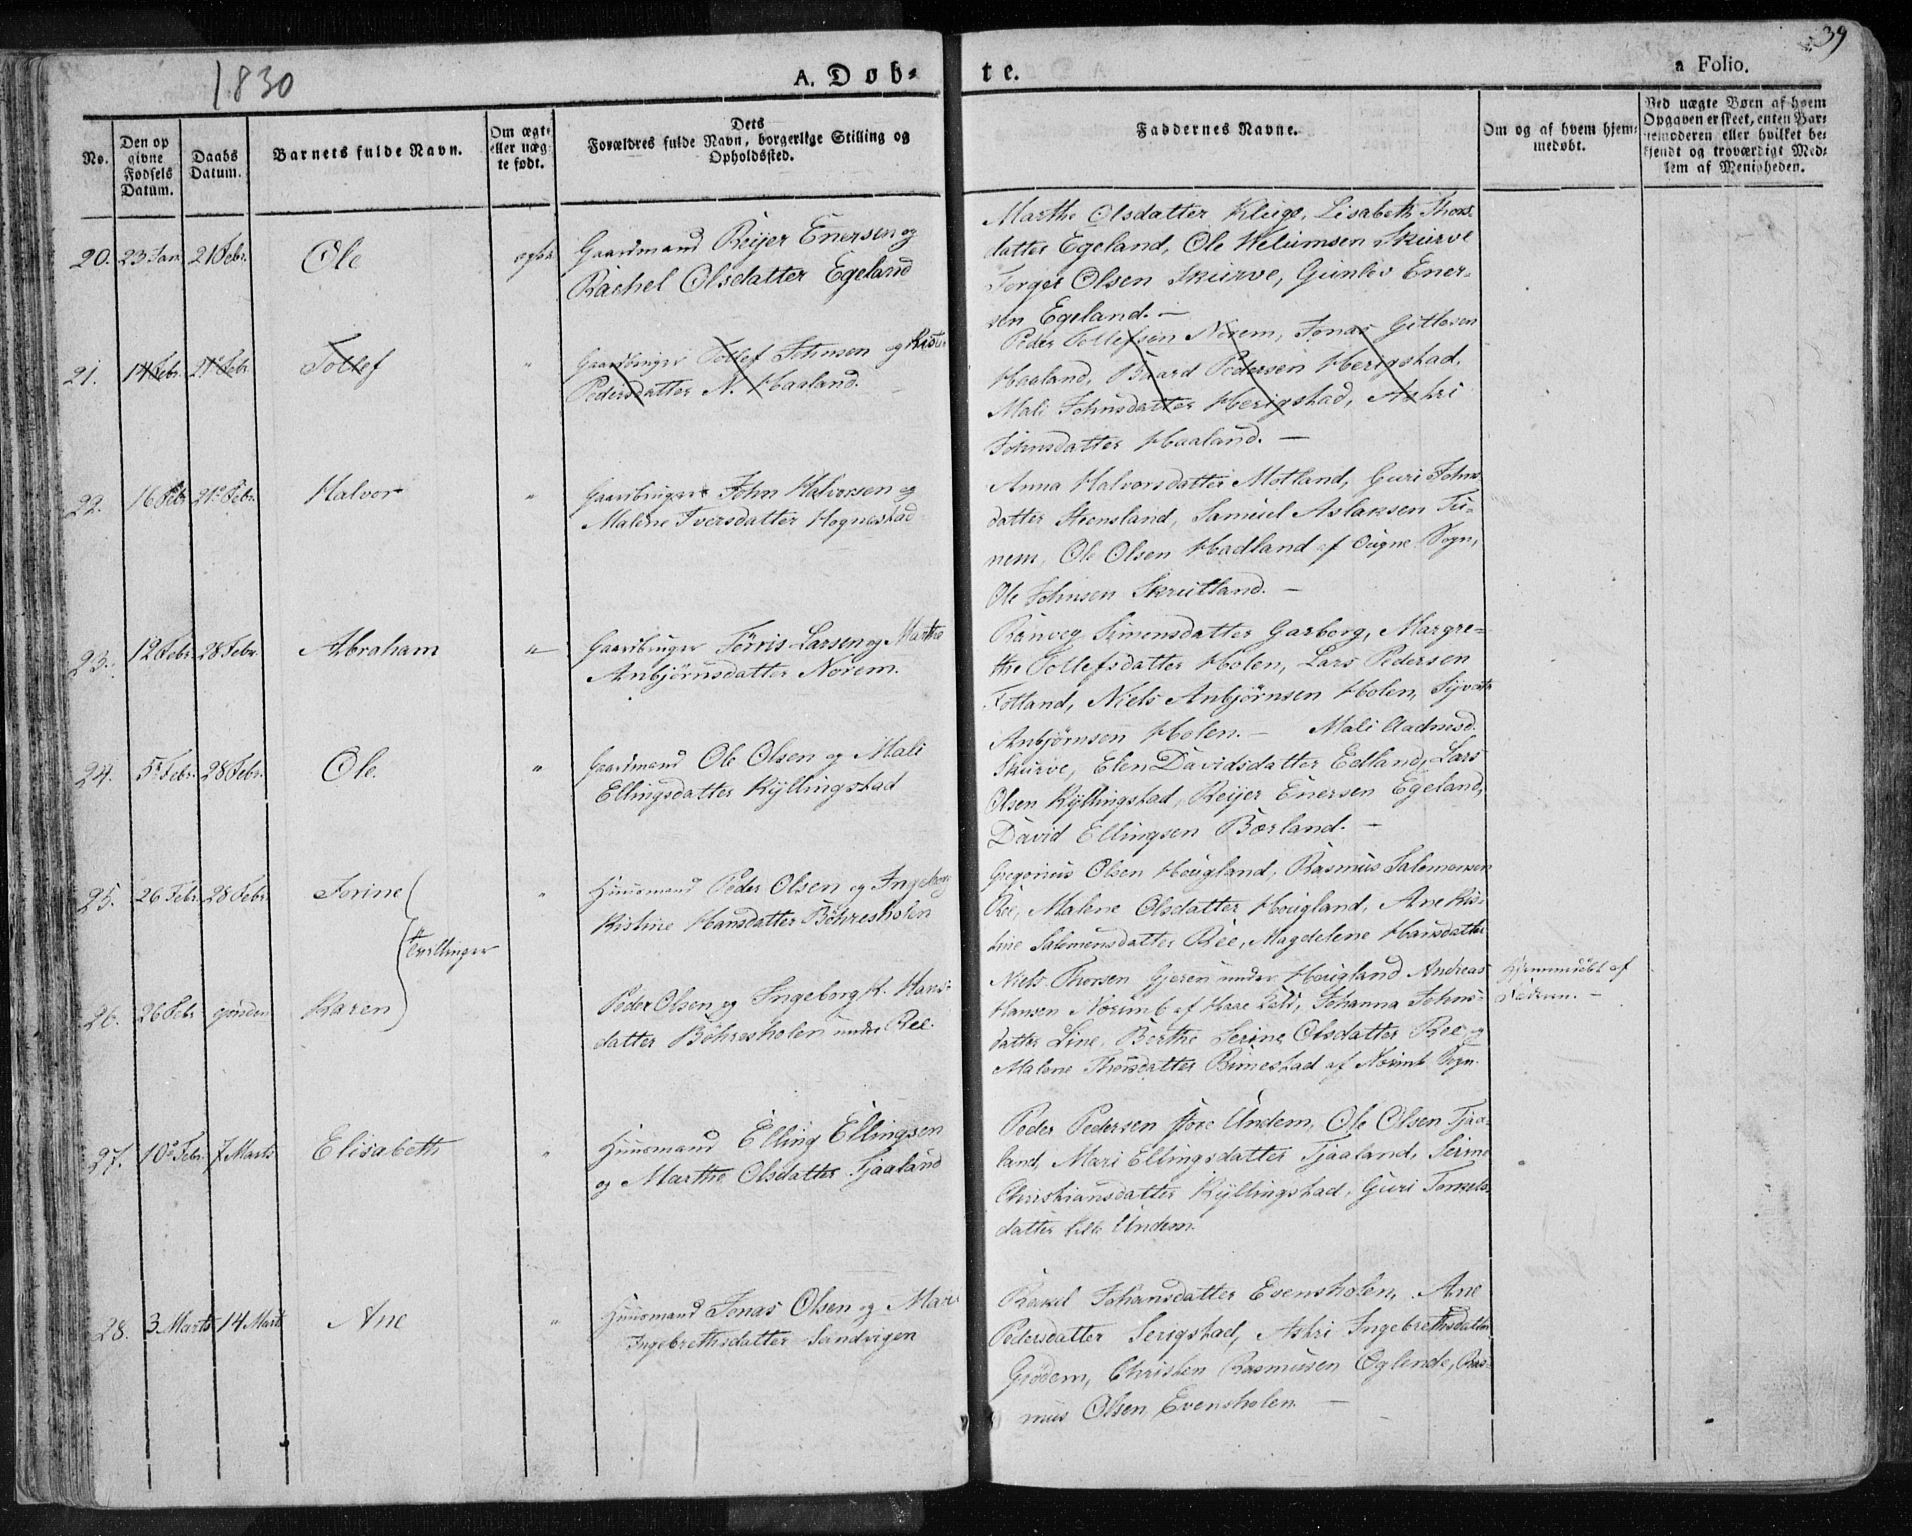 39
1830
A. Døb-
te.
a Folio.
No.
Den op
givne
Fødsels
Datum.
Daabs
Datum.
Barnets fulde Navn.
Om ægte
eller uæg-
te født.
Dets
Forældres fulde Navn, borgerlige Stilling og
Opholdssted.
Faddernes Navne.
Om og af hvem hjem-
medøbt.
Ved uægte Børn af hvem
Opgaven er skeet, enten Bar-
nemoderen eller hvilket be-
kjendt og troværdigt Med-
lem af Menigheden.
20. 23 Jan. 21 Febr. Ole ægte Gaardmand Reijer Enersen og
Rachel Olsdatter Egeland
Marthe Olsdatter Kluge, Lisabeth Thors-
datter Egeland, Ole Skurve
Torger Olsen Skurve, Gunlev Ener-
sen Egeland. —
21. 14 Febr. 21 Febr. Tollef " Gaardbruger Tollef Johnsen og
Pedersdatter N. Haaland. —
Peder Tollefsen Norem, Jonas Gitlesen
Haaland, Baard Pedersen Herigstad,
Mali Johnsdatter Herigstad, Askri
Johnsdatter Haaland. —
22. 16 Febr 21 Febr. Halvor " Gaardbruger John Halvorsen og
Malene Iversdatter Hognestad
Anna Halvorsdatter Motland, Guri Johns-
datter Steensland, Samuel Aslaksen Tu-
nem, Ole Olsen Hadland af Ougne Sogn,
Ole Johnsen Skrutland. —
23. 12 Febr. 28 Febr. Abraham " Gaardbruger Törris Larsen og Marthe
Anbjörnsdatter Norem.
Ranveg Simonsdatter Garborg, Margre-
the Tollefsdatter Holen, Lars Pedersen
Fotland, Niels Anbjörnsen Holen, Syvert
Anbjörnsen Holen. — Mali Aadnesd.
24. 5 Febr. 28 Febr. Ole. " Gaardmand Ole Olsen og Mali
Ellingsdatter Kyllingstad
Skurve, Elen Davidsdatter Edland, Lars
Olsen Kyllingstad, Reijer Enersen Egeland,
David Ellingsen Børland. —
25. 26 Febr. 28 Febr. Jorine " Huusmand Peder Olsen og Ingeborg
Kistine Hansdatter Böhresholen
Tvillinger
Gregorius Olsen Hougland, Rasmus Salomonsen
Ree, Malene Olsdatter Hougland, Ane Kis-
tine Salomonsdatter Ree, Magdelene Hansdatter
26. 26 Febr Karen Peder Olsen og Ingeborg K. Hans-
datter Böhresholen under Ree.
Niels Thorsen Gjeren under Hougland Andreas
Hansen af Johanna Johns-
datter Line, Berthe Serine Olsdatter Ree og
Malene Thorsdatter Birkestad af Sogn.
Hjemmedöbt af
27. 10 Febr. 7 Marts Elisabeth " Huusmand Elling Ellingsen
og Marthe Olsdatter Tjaaland
Peder Pedersen store Undem, Ole Olsen Tjaa-
land, Mari Ellingsdatter Tjaaland, Serine
Christiansdatter Kyllingstad, Guri Torkels-
datter Undem.
28. 3 Marts 14 Marts Ane " Huusmand Jonas Olsen og Mari
Ingebrethsdatter Sandvigen
Rakel Johansdatter Evensholen, Ane
Pedersdatter Serigstad, Askri Ingebrethsdatter
Grödem, Christen Rasmusen Oglende, Ras-
mus Olsen Evensholen. —